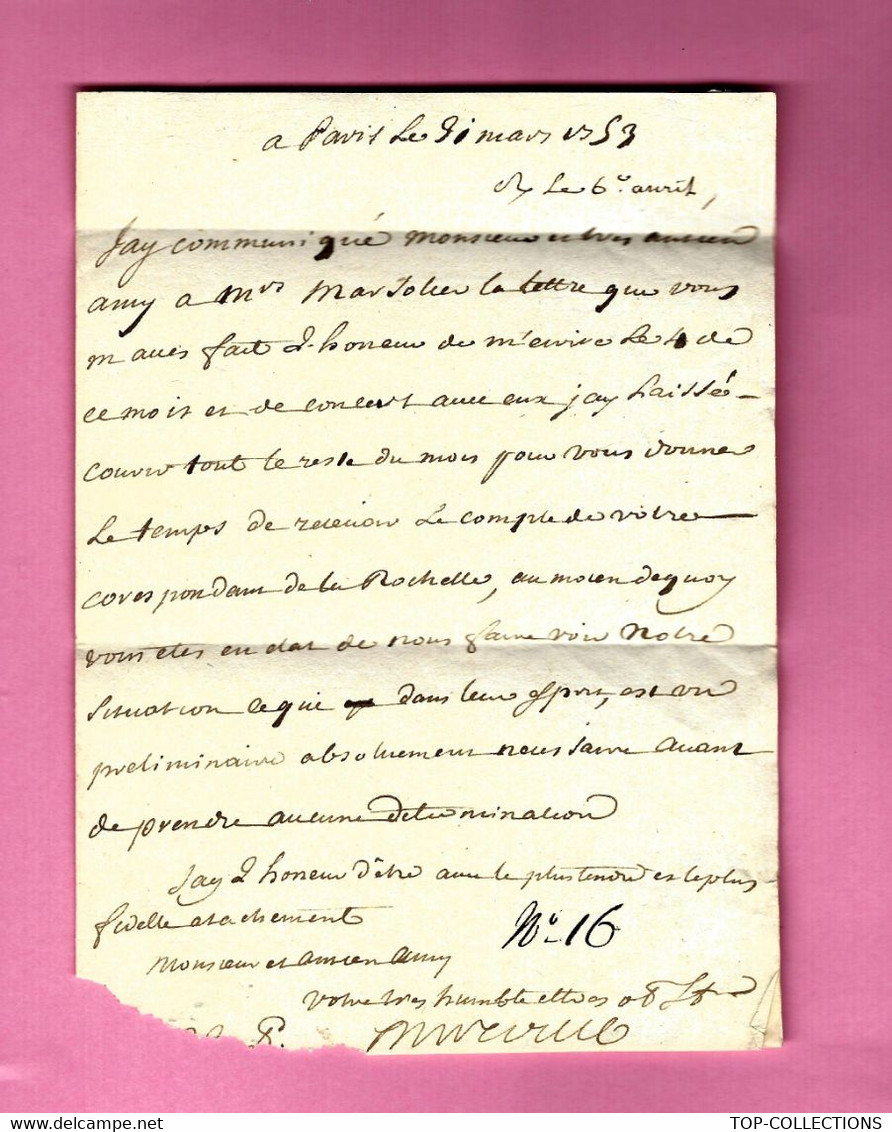 a Paris Le 31 mars 1753
Le 6.e avril,
Jay communiqué Monsieur et tres ancien
amy a Mrs la lettre que vous
m aves fait L honeur de m'ecrire Le 4 de
ce mois et de concert avec eux jay Laissé
courir tout le reste du mois pour vous donner
Le temps de recevoir Le compte de votre
corespondant de la Rochelle, au moien dequoy
vous etes en etat de nous faire voir Notre
situation ce qui dans leur esprit, est un
preliminaire absolument necessaire avant
de prendre aucune determination
Jay L honneur d'etre avec le plus tendre et le plus
fidelle atachement
No. 16
Monsieur et ancien amy
votre tres humble et tres ob St
P.
TOP-COLLECTIONS